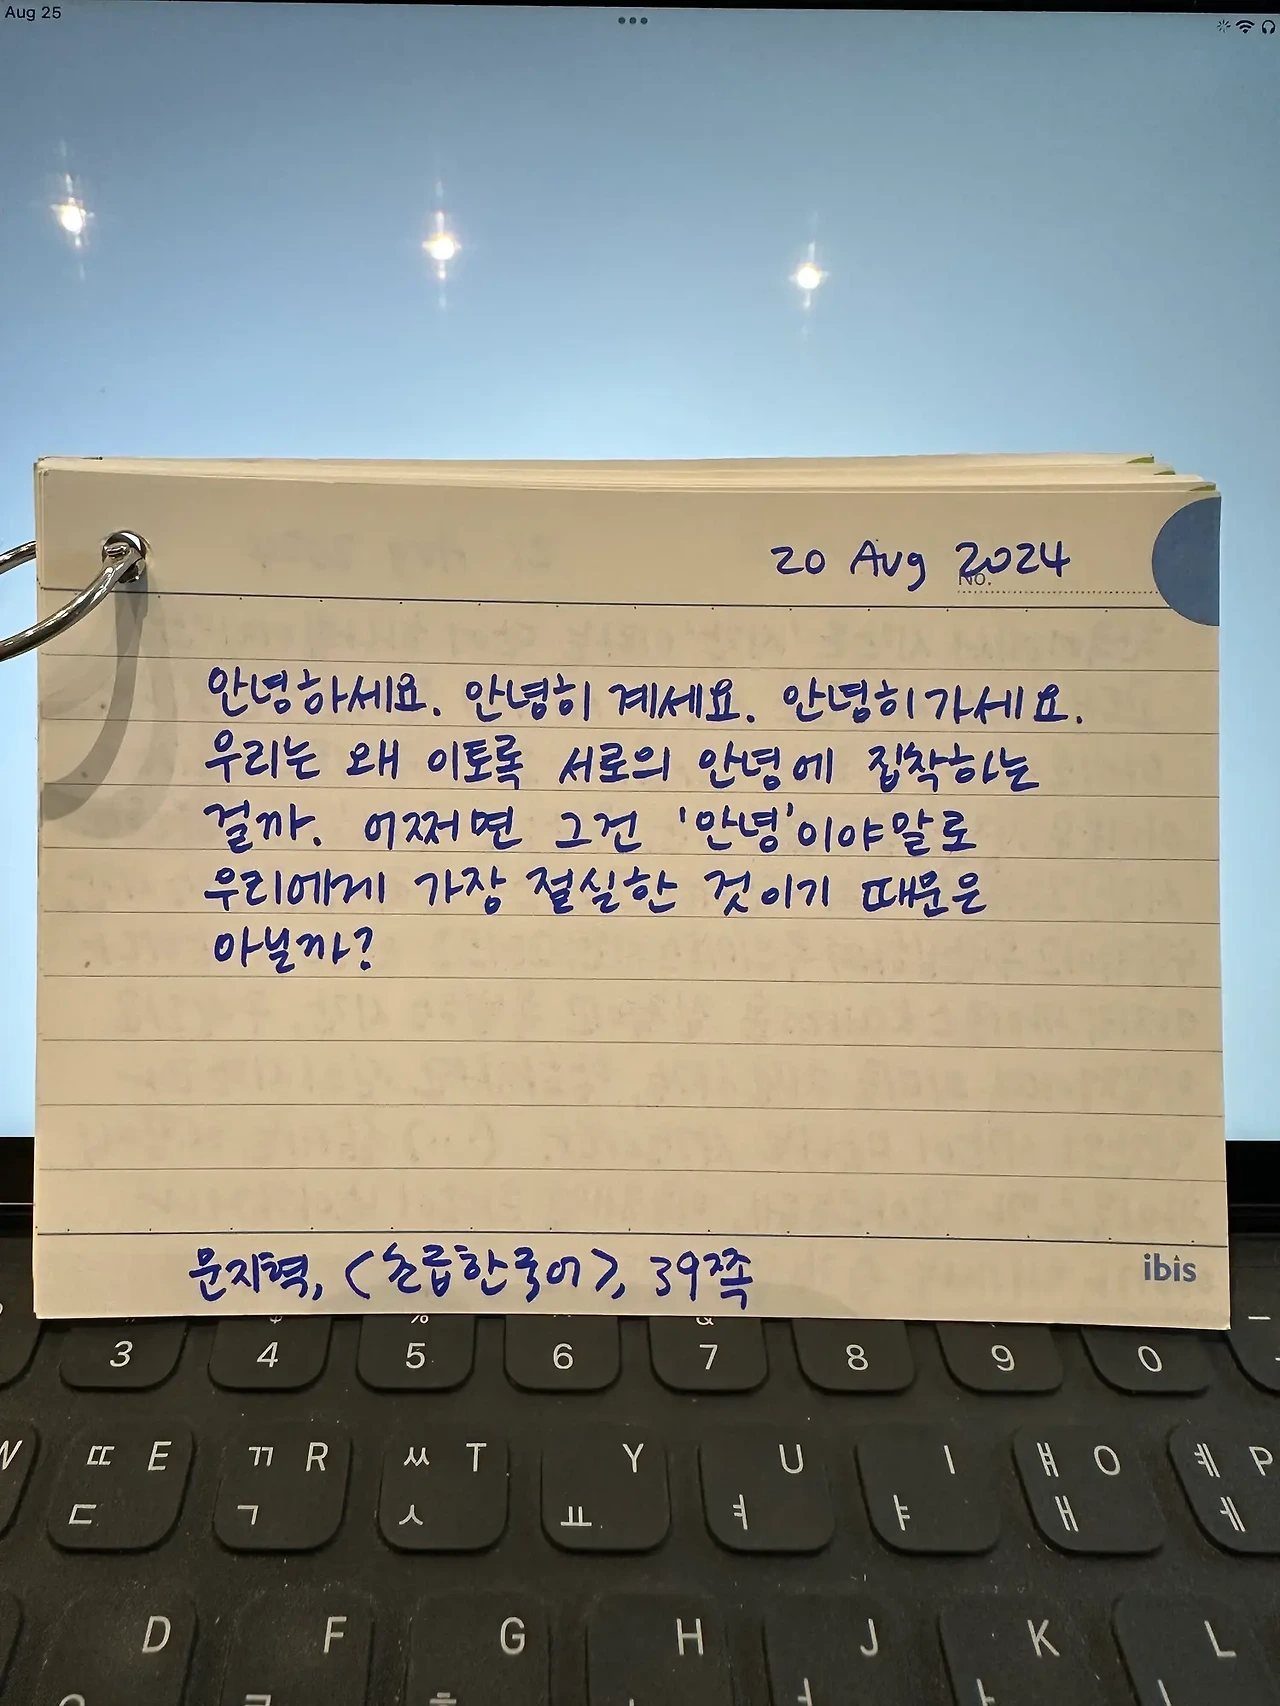 Aug 25
20 Aug 2024
No.
안녕하세요. 안녕히 계세요. 안녕히 가세요.
우리는 왜 이토록 서로의 안녕에 집착하는
걸까. 어쩌면 그건 '안녕'이야말로
우리에게 가장 절실한 것이기 때문은
아닐까?
문지혁, <초급한국어>, 39쪽
ibis
% &
3 4 5 6 7 8 9 0
W ㄸ E ㄲ R ㅆ T Y U I ㅒ O ㅖ P
ㄷ ㄱ ㅅ ㅛ ㅕ ㅑ ㅐ ㅔ
D F G H J K L